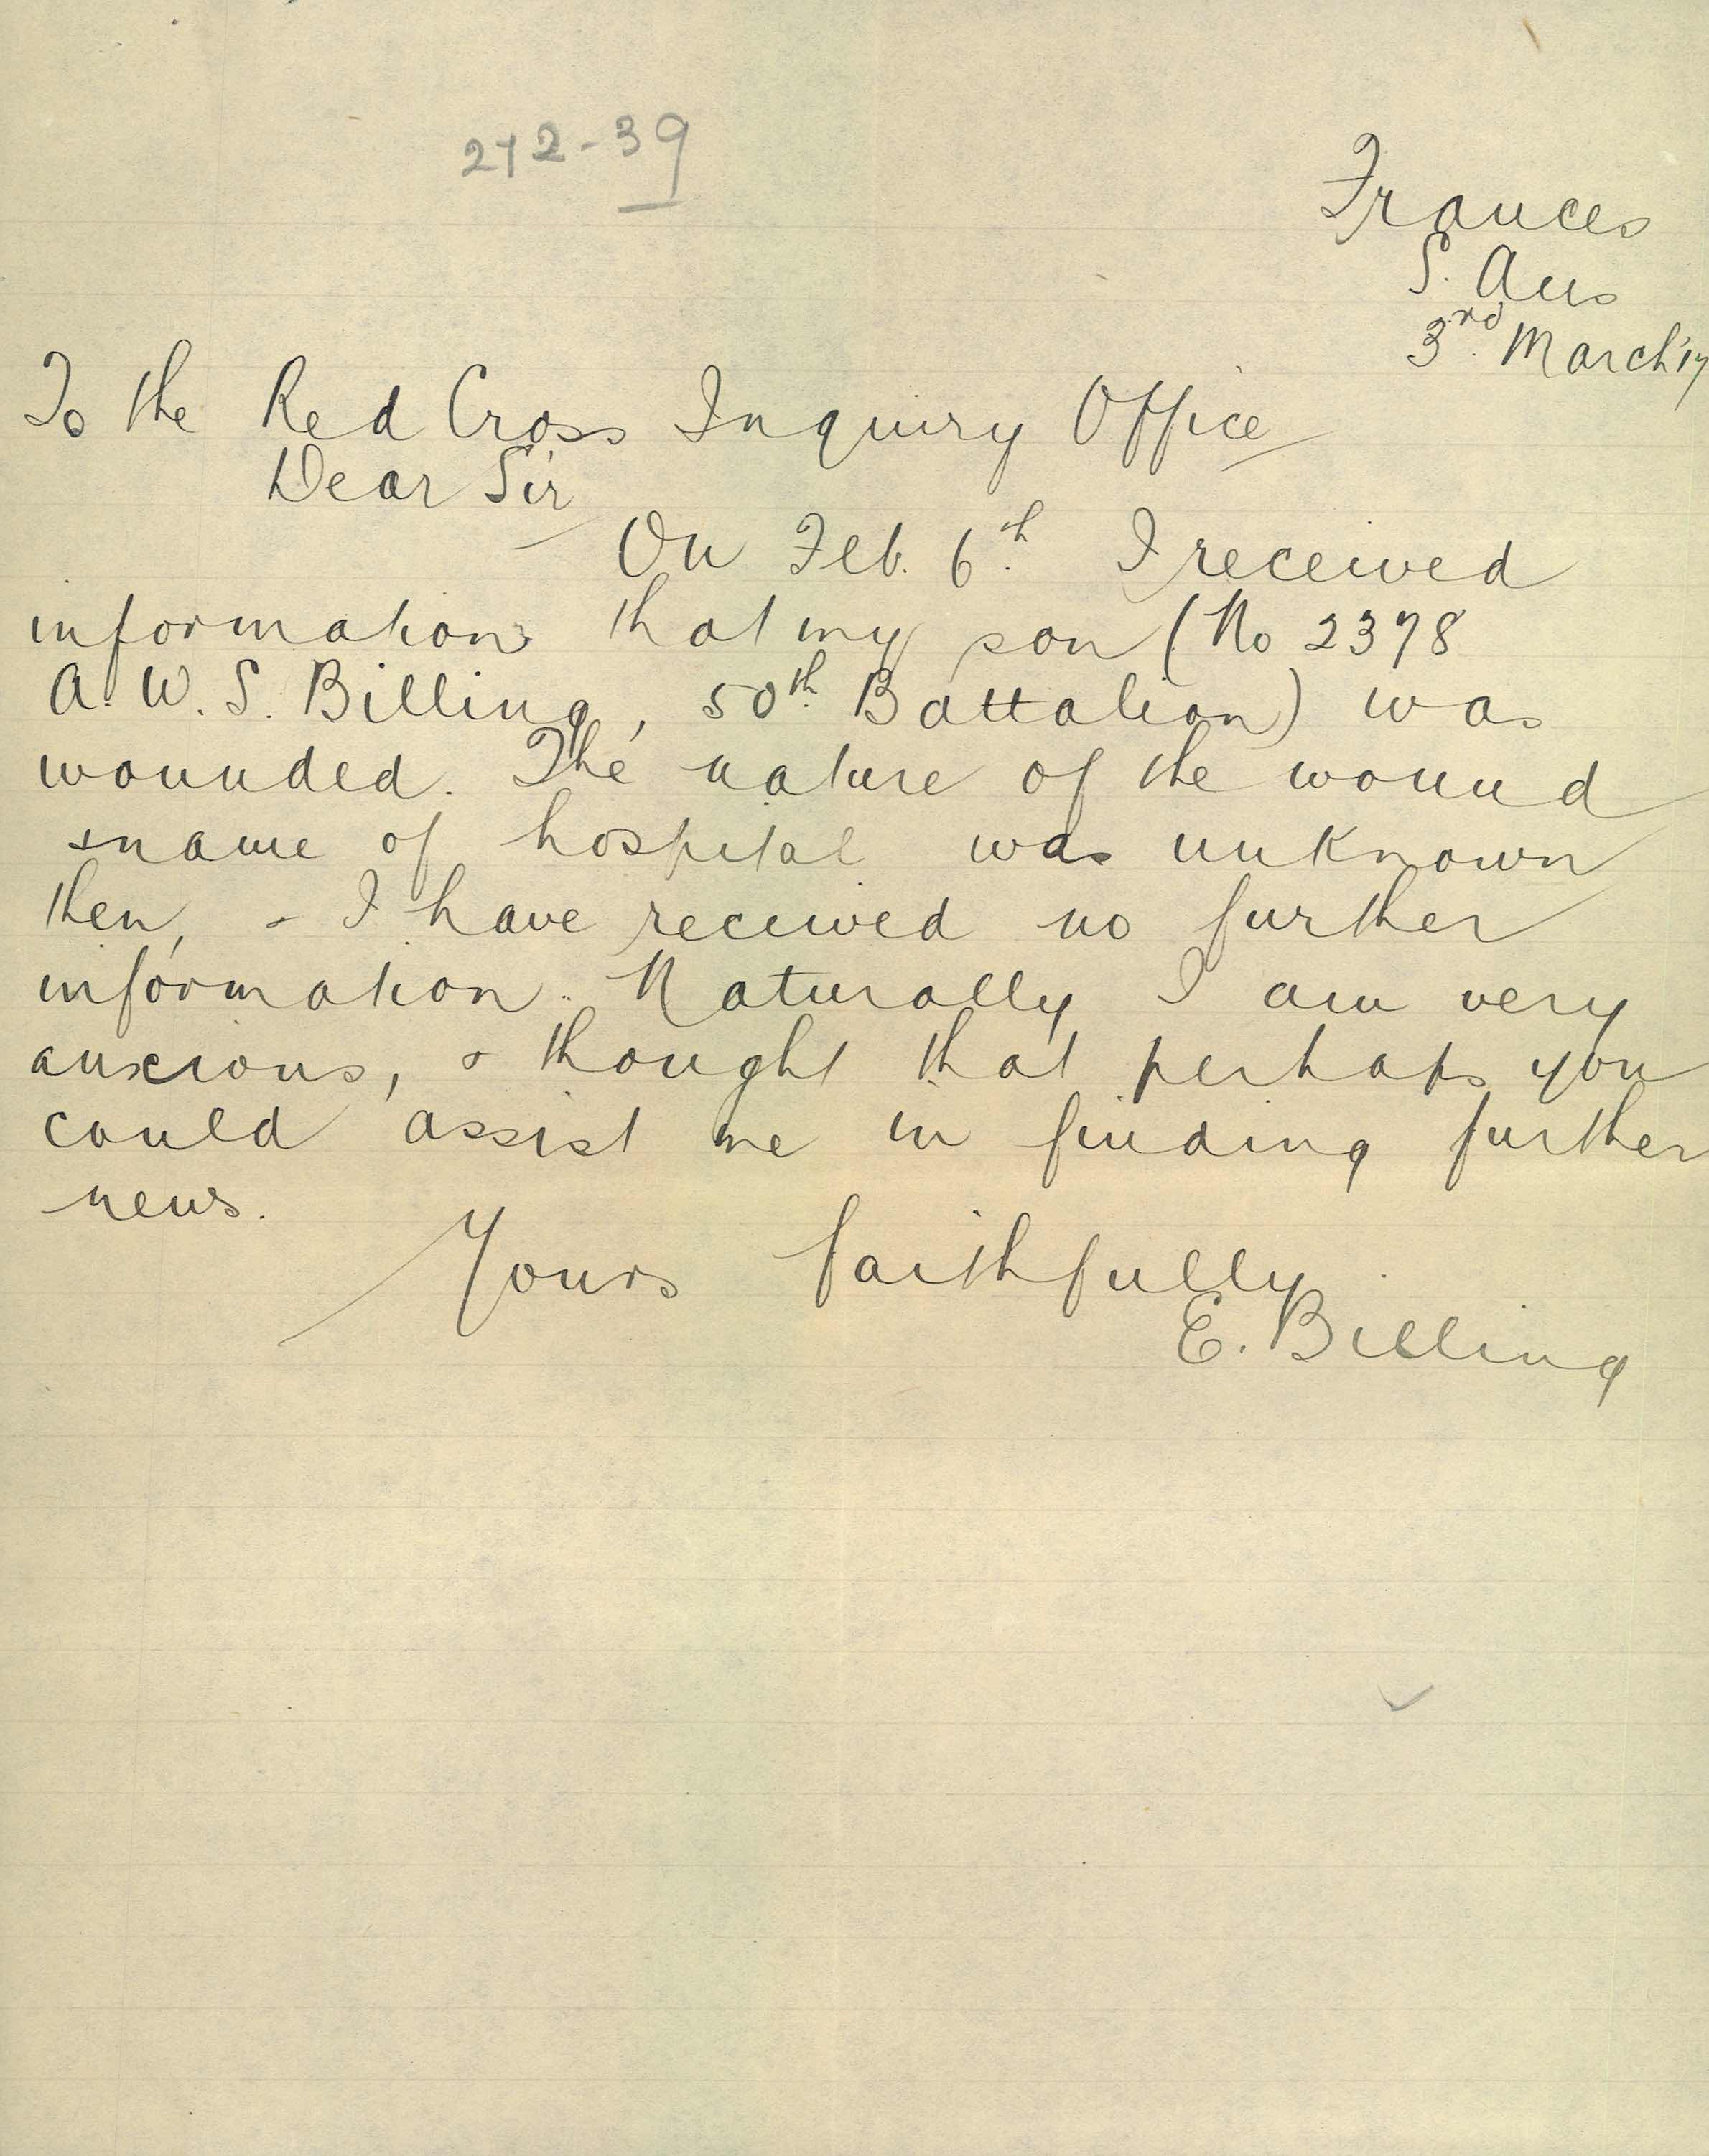 272-39
Frances
S. Aus
3rd. March '17
To the Red Cross Inquiry Office
Dear Sir
On Feb. 6th. I received
information that my son (No 2378
A. W. S. Billing, 50th. Battalion) was
wounded. The nature of the wound
& name of hospital was unknown
then, & I have received no further
information. Naturally I am very
anxious, & thought that perhaps you
could assist me in finding further
news.
Yours faithfully
E. Billing